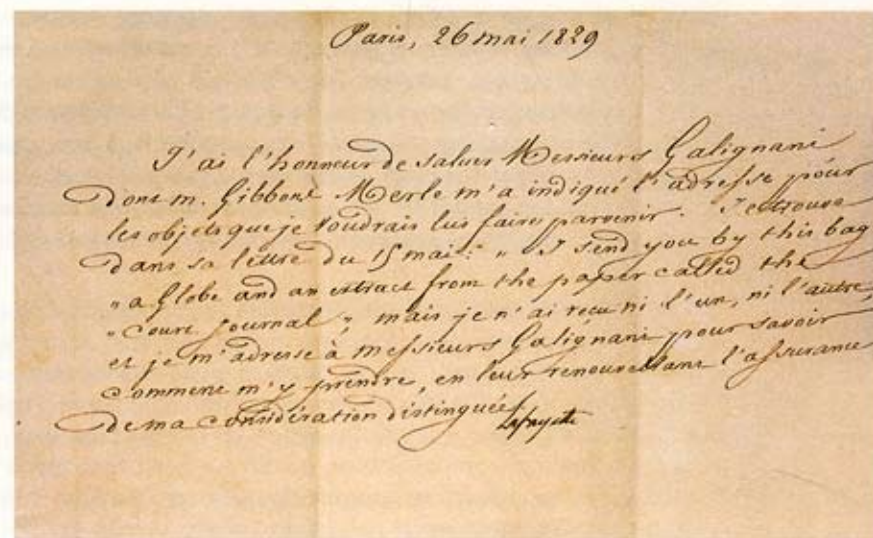 Paris, 26 mai 1829
J'ai l'honneur de saluer Messieurs Galignani
dont m. Gibbons Merle m'a indiqué l'adresse pour
les objets que je voudrais lui faire parvenir. Je trouve
dans sa lettre du 15 mai : „ I send you by this bag
„ a Globe and an extract from the paper called the
„ Court Journal „ mais je n'ai recu ni l'un, ni l'autre,
et je m'adresse à messieurs Galignani pour savoir
comment m'y prendre, en leur renouvellant l'assurance
de ma considération distinguée
Lafayette